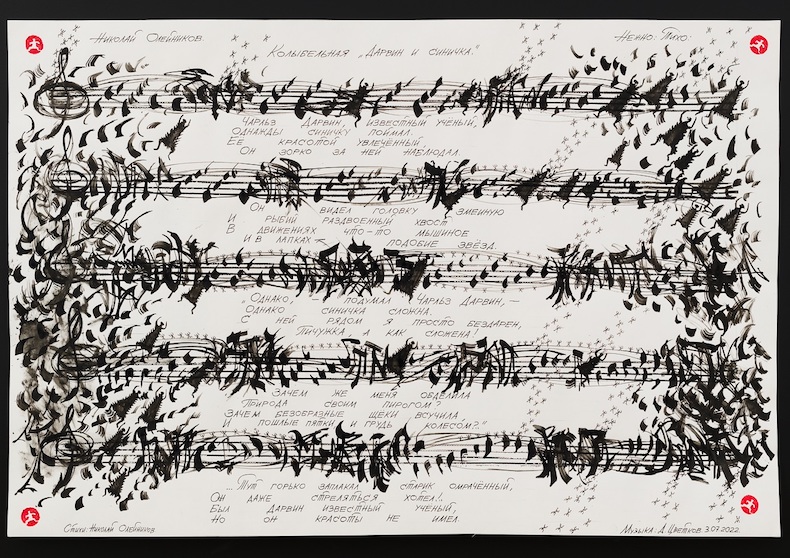 Николай Олейников.
Колыбельная „Дарвин и синичка."
Нежно: Тихо:
Чарльз Дарвин, известный ученый,
Однажды синичку поймал.
Ее красотой увлеченный,
Он зорко за ней наблюдал.
Он видел головку змеиную
И рыбий раздвоенный хвост
В движениях что-то мышиное
И в лапках – подобие звёзд.
„Однако, – подумал Чарльз Дарвин, –
Однако синичка сложна.
С ней рядом я просто бездарен,
Птичужка, а как сложена!
Зачем же меня обделила
Природа своим пирогом?
Зачем безобразные щеки всучила
И пошлые пятки и грудь колесом?"
...Тут горько заплакал старик омраченный,
Он даже стреляться хотел!..
Был Дарвин известный ученый,
Но он красоты не имел.
Стихи: Николай Олейников
Музыка: Д. Цветков. 3.07.2022.